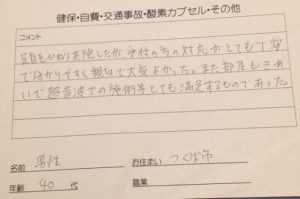 健保・自費・交通事故・酸素カプセル・その他
コメント
来院したが受付の方の対応がとても丁寧
で分かりやすく親切で大変よかった。また部屋もきれ
いで超音波での施術等とても満足するものであった。
名前 男性 お住まい つくば市
年齢 40 代 職業